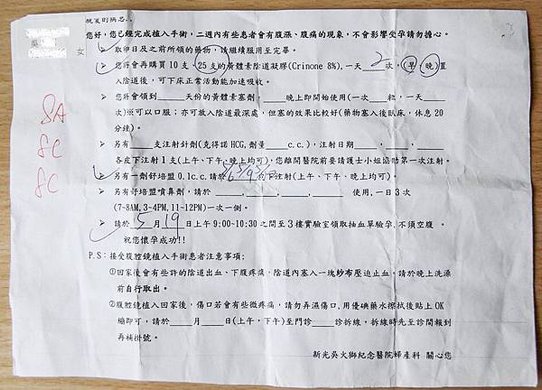 您好,您已經完成植入手術,二週內有些患者會有腹漲、腹痛的現象,不會影響受孕請勿擔心。
取卵日及之前所領的藥物,請繼續服用至完畢。
您將會再購買10支、25支的黃體素陰道凝膠(Crinone 8%),一天 2 次,(早、晚)置
入陰道後,可下床正常活動能加速吸收。
您將會領到 天份的黃體素塞劑, 晚上即開始使用(一次 粒,一天
次)※可以口服;亦可放入陰道最深處,但塞的效果比較好(藥物塞入後臥床,休息20
分鐘)。
8A
8C
8C
另有 支注射針劑(克得諾HCG,劑量 c.c.),注射日期 , ,
各皮下注射1支(上午、下午、晚上均可),您離開醫院前要請護士小姐協助第一次注射。
另有一劑舒培盟0.1c.c.請於 皮下注射(上午、下午、晚上均可)。
另有舒培盟噴鼻劑,請於 , , , 使用,一日3次
(7~8AM,3~4PM,11~12PM)一次一側。
請於 5 月 19 日上午9:00~10:30之間至3樓實驗室領取抽血單驗孕,不須空腹。
祝您懷孕成功!!
P.S:接受腹腔鏡植入手術患者注意事項:
①回家後會有些許的陰道出血、下腹疼痛,陰道內塞入一塊紗布壓迫止血,請於晚上洗澡
前自行取出。
②腹腔鏡植入回家後,傷口若會有些微疼痛,請勿弄濕傷口,用優碘藥水擦拭後貼上OK
繃即可,請於 月 日(上午,下午)至門診 診拆線,拆線時先至診間報到
再補掛號。
新光吳火獅紀念醫院婦產科 關心您